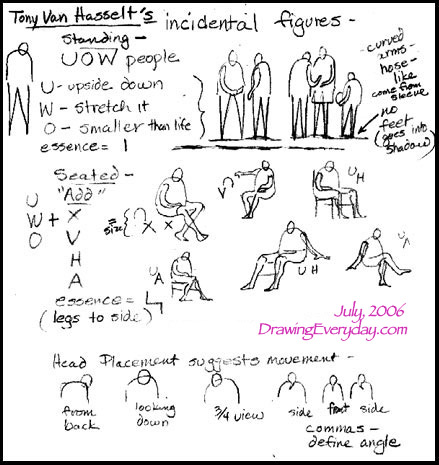 Tony Van Hasselt's incidental figures -
Standing -
UOW people
U - upside down
W - stretch it
O - smaller than life
essence = 1
curved arms -
hose -
like
come from
sleeve
no
feet
(goes into
shadow)
Seated -
"Add"
U
W + X
O V
H
A
essence =
(legs to side)
size
X X
V
U H
U A
U H
U A
July, 2006
DrawingEveryday.com
Head Placement suggests movement -
from
back
looking
down
3/4 view
side front side
commas -
define angle